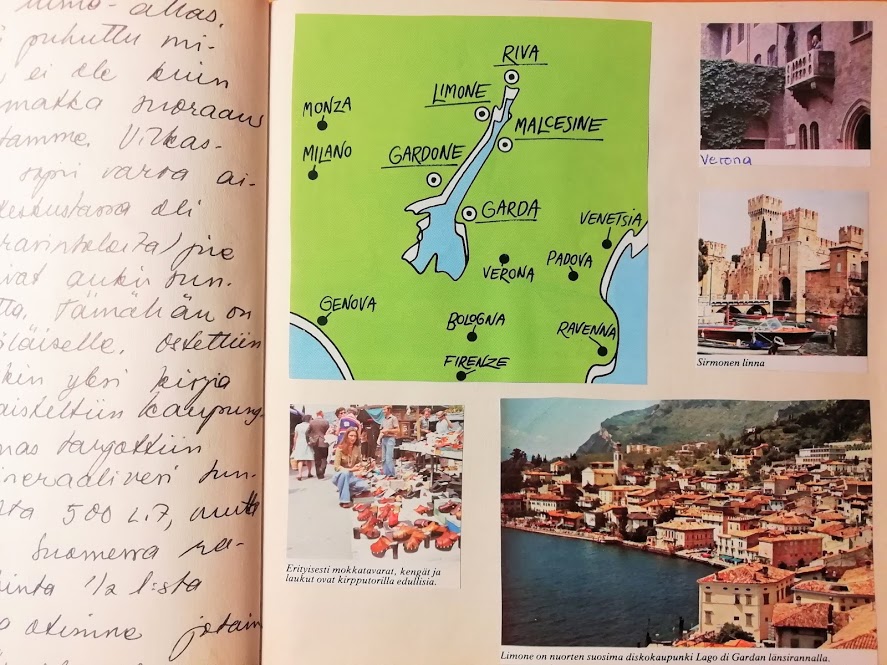 puhuttu mi-
ei ole kuin
matka suoraan
tamme. Vilkas-
varsa ai-
keskustassa oli
ravinteleita) jne
ivat auki sun-
tta. Tämähän on
läiselle. Ostettiin
kin yksi kirja
aisteltiin kaupung-
nas tarjottiin
ineraalivesi sun-
ta 500 L.?, mutta
Suomessa ra-
hinta ½ l:sta
otimme jotain
RIVA
LIMONE
MONZA
MALCESINE
MILANO
GARDONE
GARDA
VENETSIA
PADOVA
VERONA
GENOVA
BOLOGNA
RAVENNA
FIRENZE
Verona
Sirmonen linna
Erityisesti mokkatavarat, kengät ja
laukut ovat kirpputorilla edullisia.
Limone on nuorten suosima diskokaupunki Lago di Gardan länsirannalla.